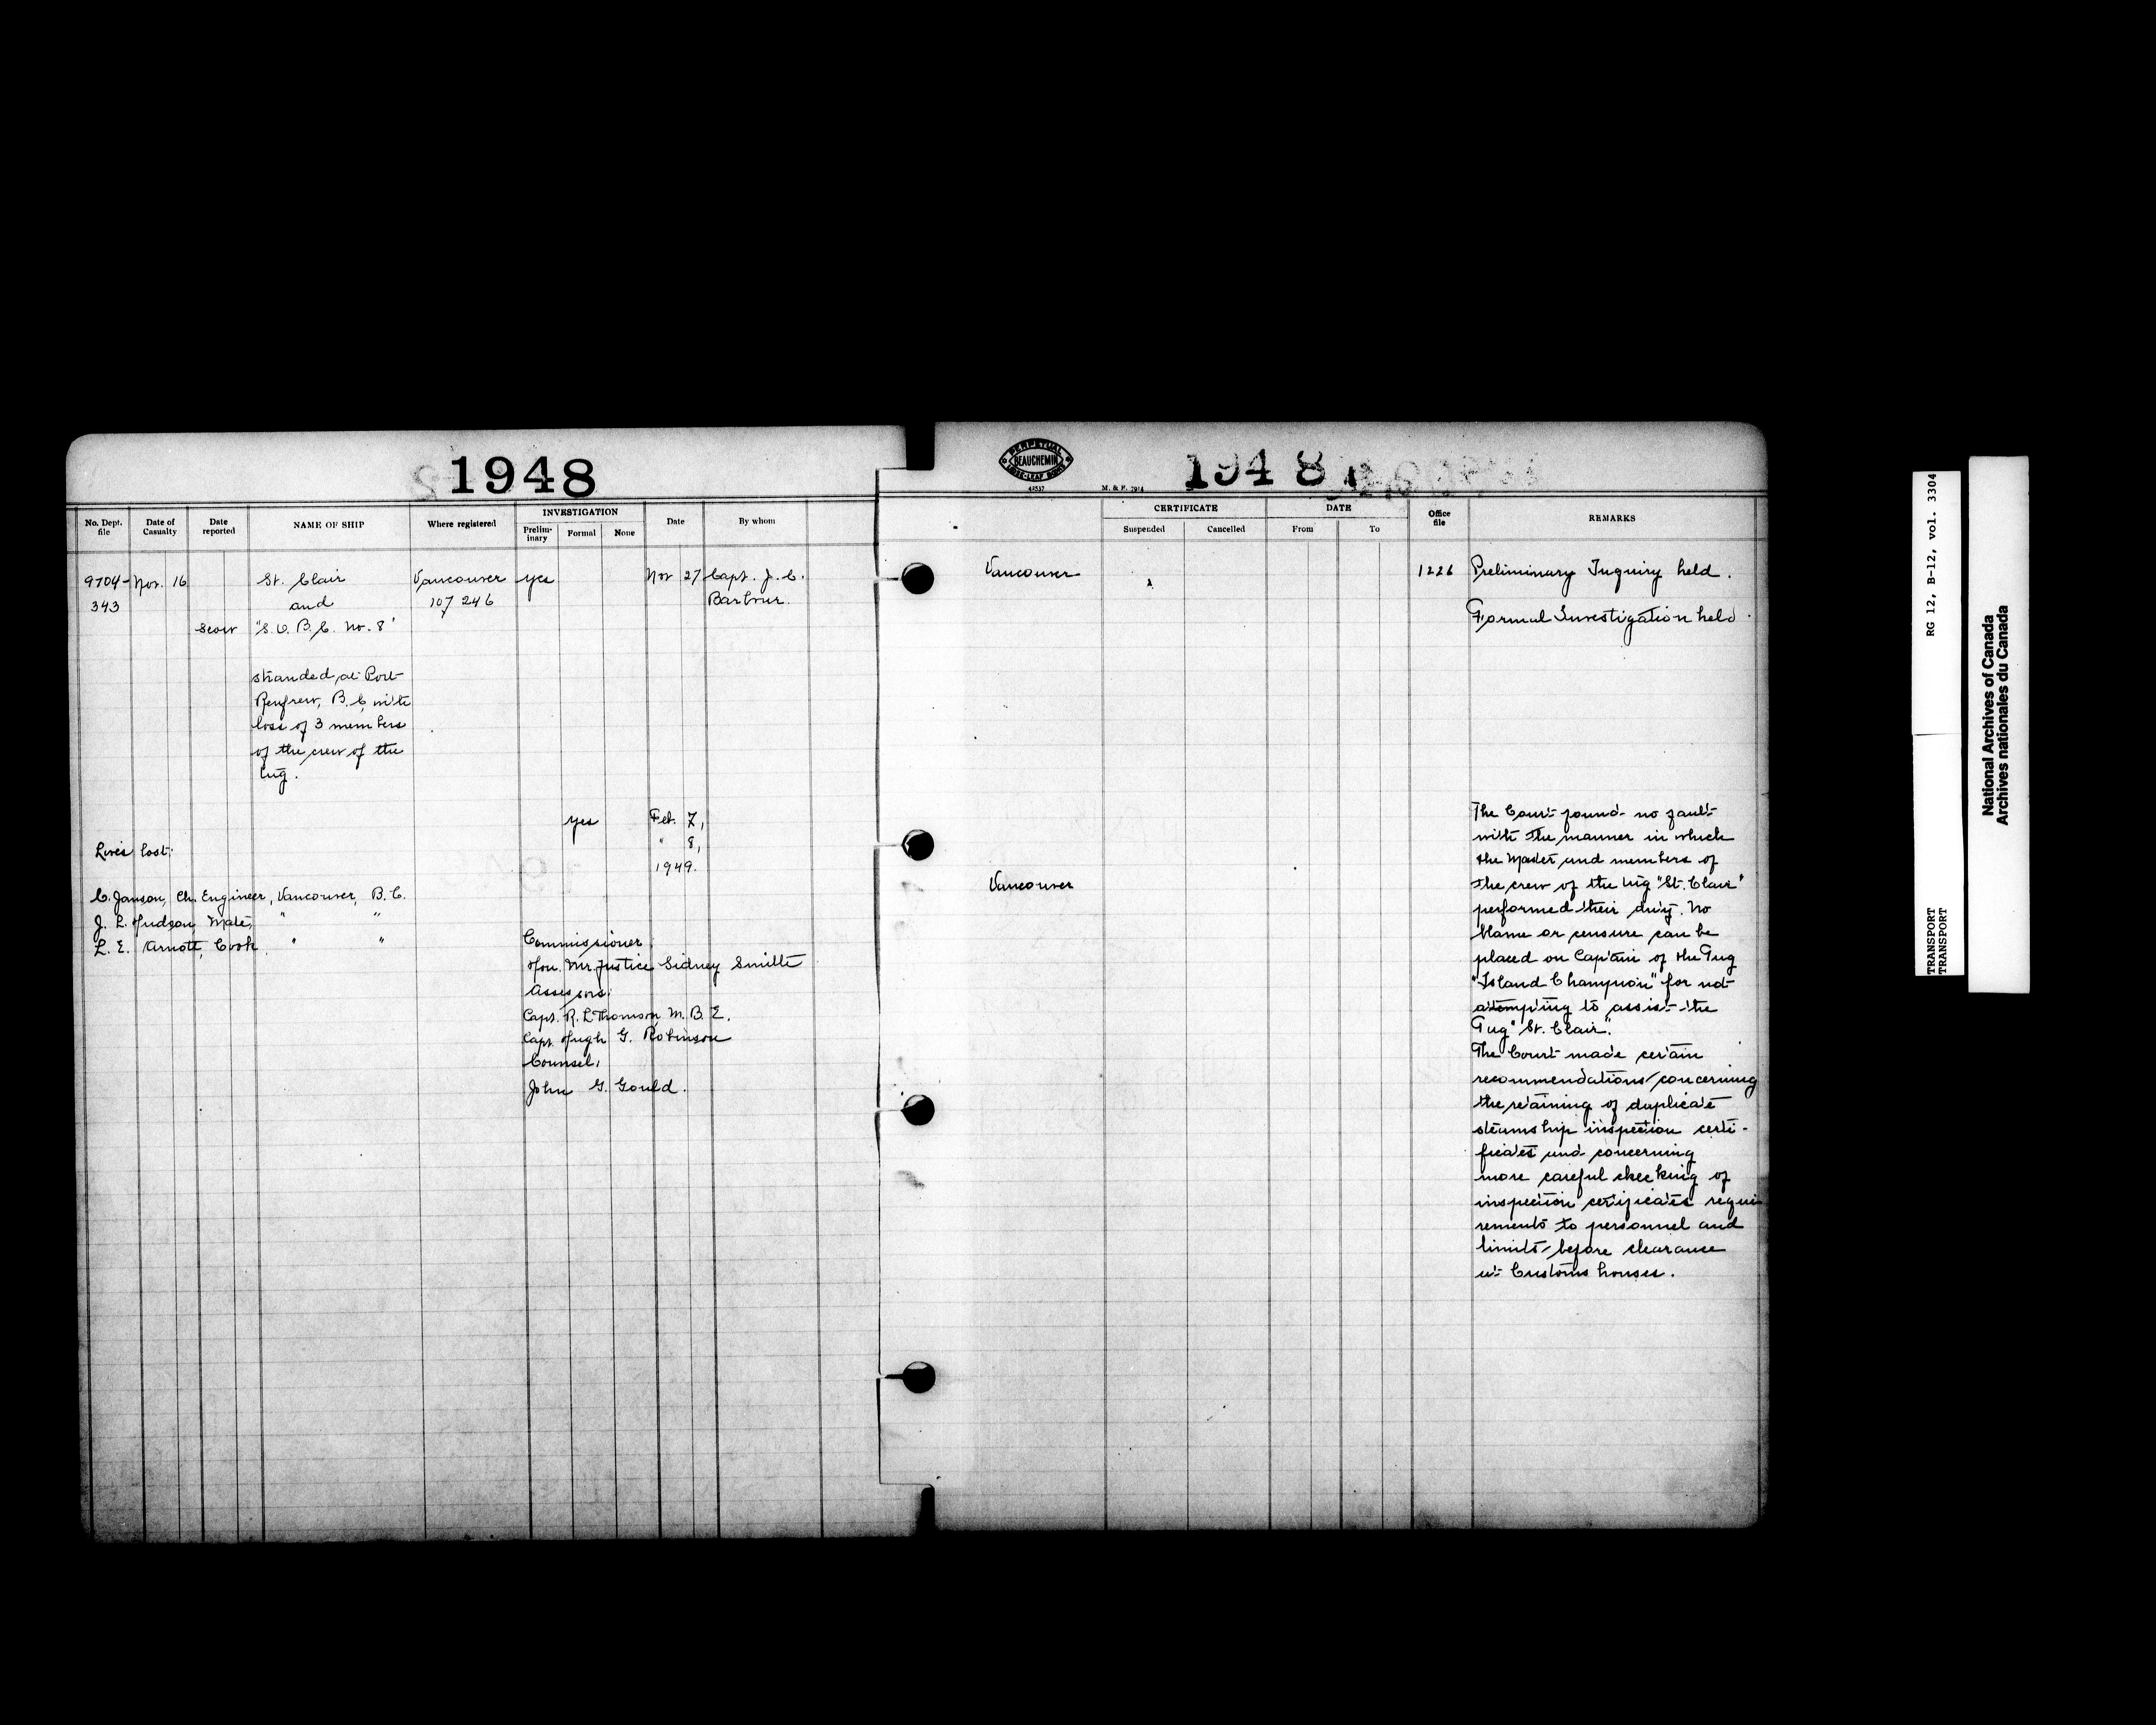 1948
No. Dept. file
Date of Casualty
Date reported
NAME OF SHIP
Where registered
INVESTIGATION
Prelim-inary
Formal
None
Date
By whom
9704- Nov. 16 St. Clair Vancouver yes Nov 27 Capt. J. C.
343 and 107 246 Barbour.
Scow "S.O.B.C. No. 8"
stranded at Port
Renfrew, B.C. with
loss of 3 members
of the crew of the
tug.
yes Feb. 7,
" 8,
1949.
Lives lost:
C. Janson, Ch. Engineer, Vancouver, B.C.
J. L. Hudson, Mate, " "
L. E. Arnott, Cook, " "
Commissioner
Hon. Mr. Justice Sidney Smith
Assessors:
Capt. R. L. Thomson M.B.E.
Capt. Hugh G. Robinson
Counsel,
John G. Gould.
PERPETUAL
BEAUCHEMIN
LOOSE-LEAF
42537
M. & F. 7914
1948
CERTIFICATE
Suspended
Cancelled
DATE
From
To
Office file
REMARKS
Vancouver 1226 Preliminary Inquiry held.
Formal Investigation held.
Vancouver
The Court found no fault
with the manner in which
the Master and members of
the crew of the tug "St. Clair"
performed their duty. No
blame or censure can be
placed on Captain of the Tug
"Island Champion" for not
attempting to assist the
Tug "St. Clair".
The Court made certain
recommendations concerning
the retaining of duplicate
steamship inspection certi-
ficates and concerning
more careful checking of
inspection certificates requi
rements to personnel and
limits before clearance
at Customs houses.
RG 12, B-12, vol. 3304
TRANSPORT
TRANSPORT
National Archives of Canada
Archives nationales du Canada